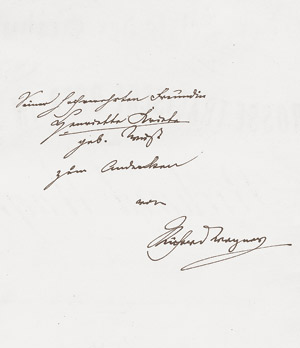 Seiner hochverehrten Freundin
Henriette Kriete
geb. Wüst
zum Andenken
von
Richard Wagner